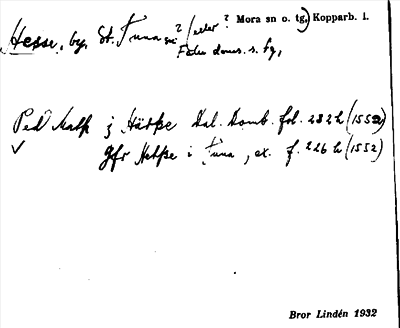 Hesse, by, St. Tuna sn ? / eller ? Mora sn o. tg.) Kopparb. l.
Falu doms. s. tg.
Ped Matß j Hätße Dal. Domb. fol. 282 h (1552)
gfr Hetße i Tuna, ex. f. 226 h (1552)
Bror Lindén 1932